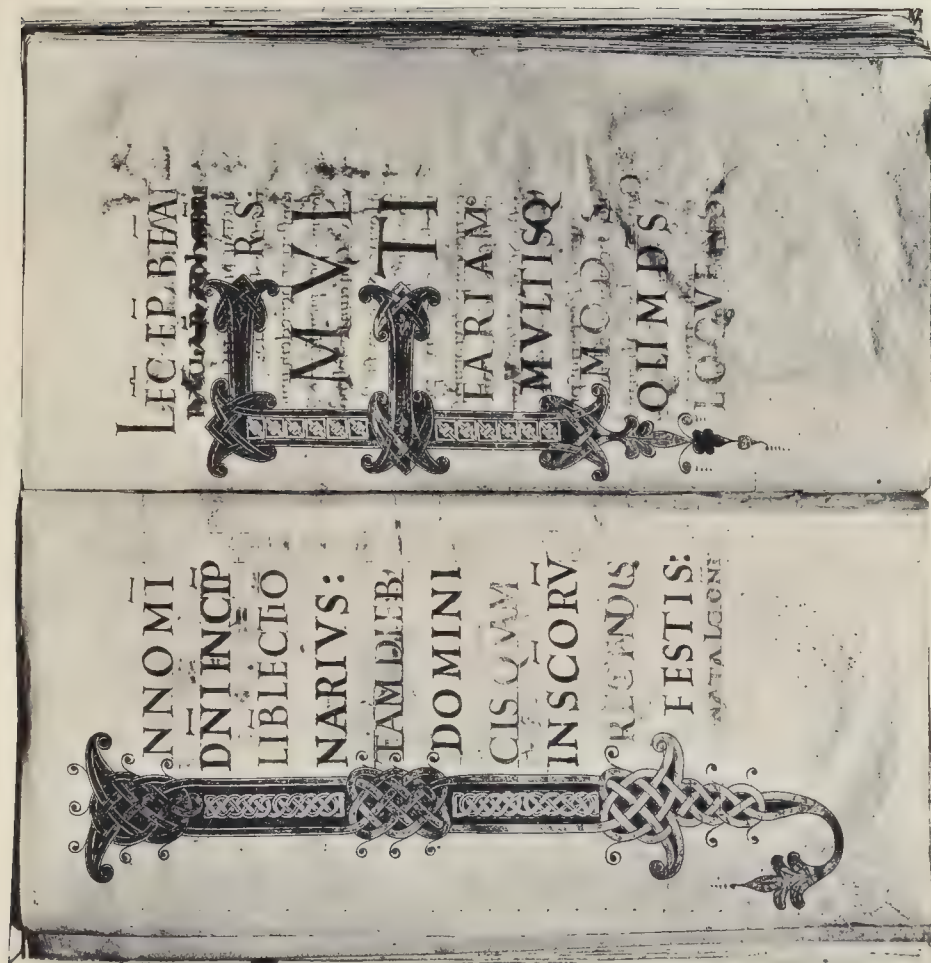 INNOMĪ
DN̄I INCIP̄
LIB̄ LECTIO
NARIVS:
TAM DIEB;
DOMINI
CIS QVAM
IN SC̄ORV̄
FESTIS:
LEC̄ EP̄ BEATI
FR̄S:
MVL
TI
FARIAM
MVLTISQ;
MODIS
OLIM DS̄